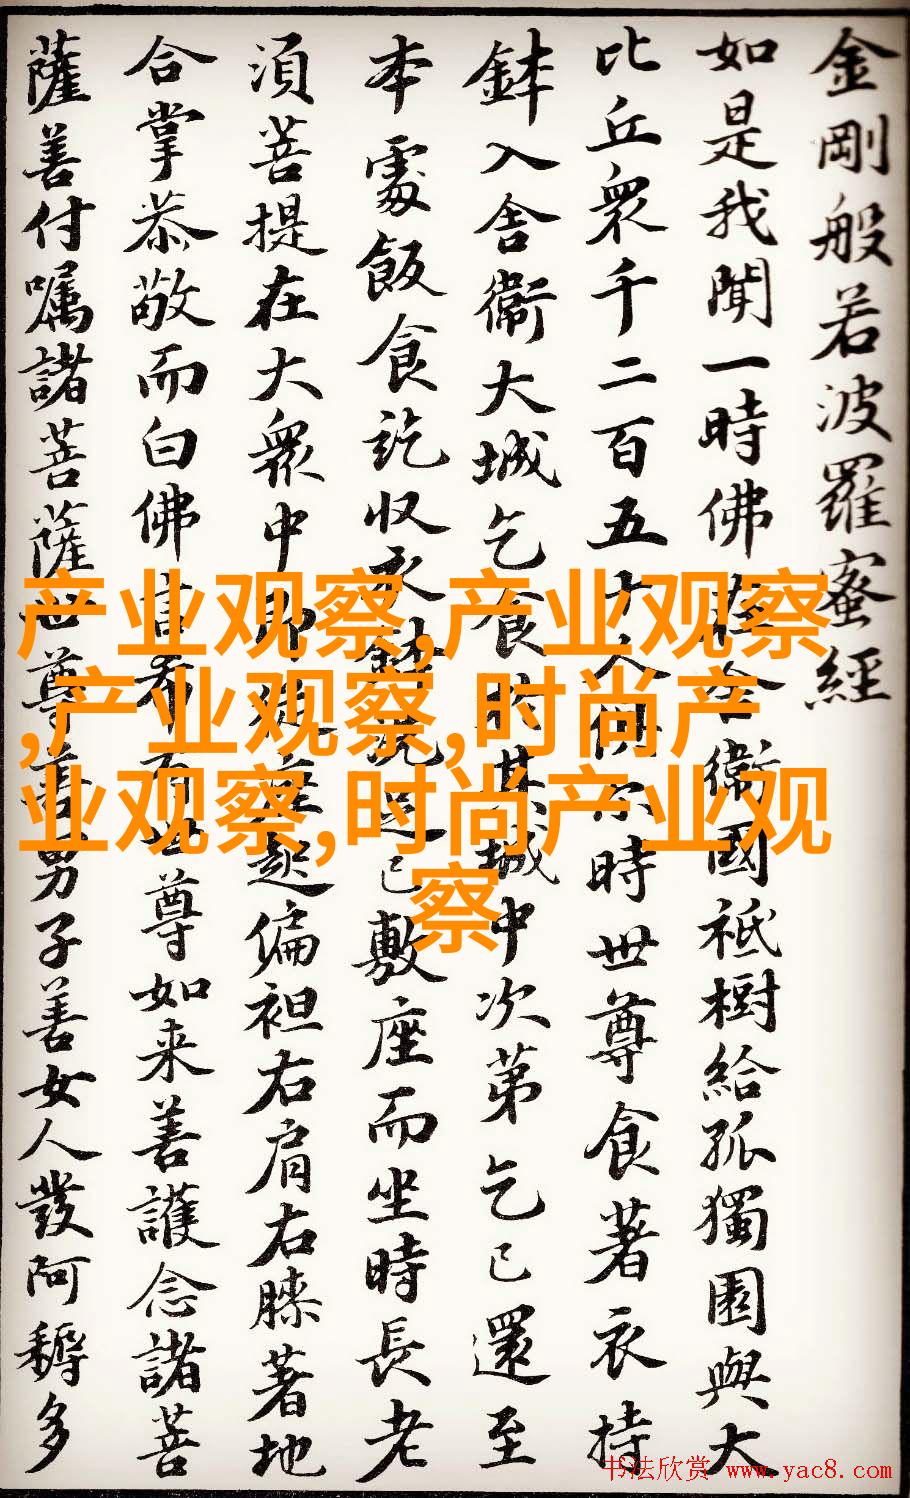 金剛般若波羅蜜經
如是我聞一時佛在舍衞國祇樹給孤獨園與大
比丘衆千二百五十人俱尒時世尊食著衣持
鉢入舍衞大城乞食於其城中次第乞已還至
本處飯食訖收衣鉢洗足已敷座而坐時長老
須菩提在大衆中即從座起偏袒右肩右膝著地
合掌恭敬而白佛言希有世尊如来善護念諸菩
薩善付囑諸菩薩世尊善男子善女人發阿耨多
产业观察,产业观察
,产业观察,时尚产
业观察,时尚产业观
察
书法欣赏 www.yac8.com